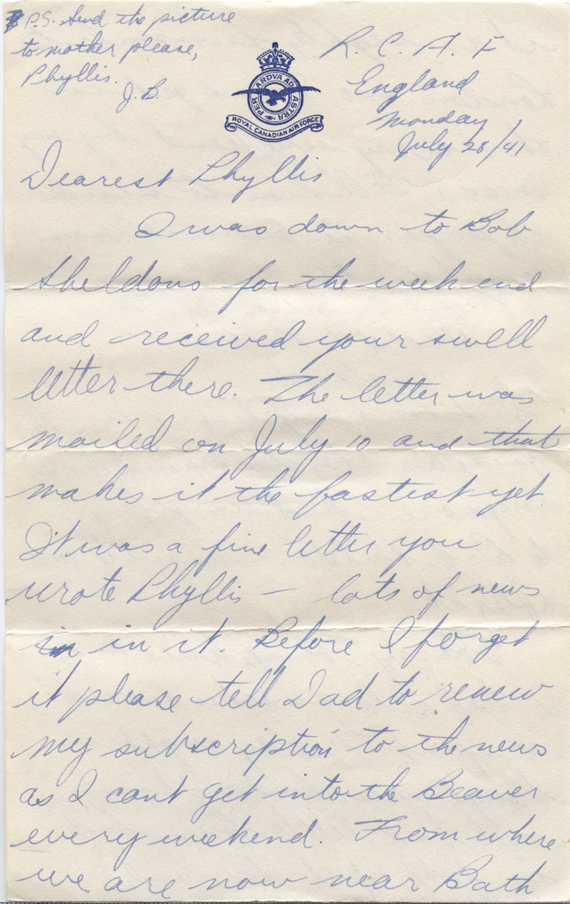 P.S. Send the picture
to mother please,
Phyllis.
J.B.
PER ARDVA AD ASTRA
ROYAL CANADIAN AIR FORCE
R. C. A. F
England
Monday
July 28/41
Dearest Phyllis
I was down to Bob
Sheldons for the week end
and received your swell
letter there. The letter was
mailed on July 10 and that
makes it the fastest yet
It was a fine letter you
wrote Phyllis – lots of news
in in it. Before I forget
it please tell Dad to renew
my subscription to the news
as I cant get into the Beaver
every weekend. From where
we are now near Bath